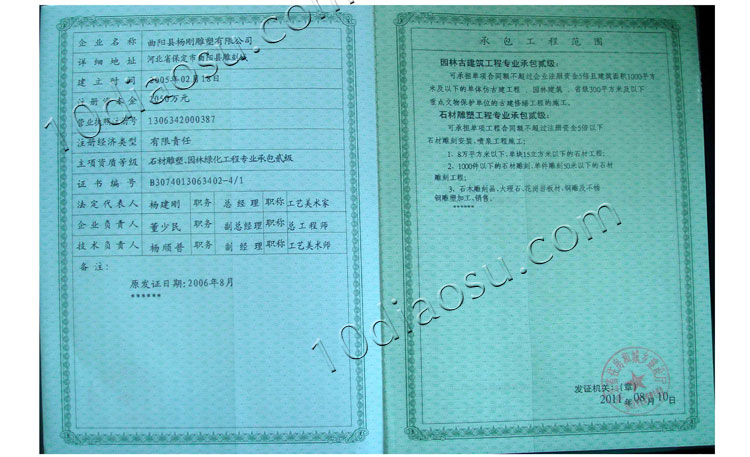 企业名称 曲阳县杨刚雕塑有限公司
详细地址 河北省保定市曲阳县雕刻城
建立时间 2005年02月18日
注册资本金 2050万元
营业执照注册号 1306342000387
注册经济类型 有限责任
主项资质等级 石材雕塑、园林绿化工程专业承包贰级
证书编号 B3074013063402-4/1
法定代表人 杨建刚 职务 总经理 职称 工艺美术家
企业负责人 董少民 职务 副总经理 职称 总工程师
技术负责人 杨顺普 职务 副经理 职称 工艺美术师
备注:
原发证日期:2006年8月
******
承包工程范围
园林古建筑工程专业承包贰级:
可承担单项合同额不超过企业注册资金5倍且建筑面积1000平方
米及以下的单体仿古建工程、园林建筑、省级300平方米及以下
重点文物保护单位的古建修缮工程的施工。
石材雕塑工程专业承包贰级:
可承担单项工程合同额不超过注册资金5倍以下
石材雕刻安装、喷泉工程施工:
1、8万平方米以下、单块15立方米以下的石材工程;
2、1000件以下的石材雕刻、单件雕刻50米以下的石材
雕刻工程;
3、石木雕刻品、大理石、花岗岩板材、铜雕及不锈
钢雕塑加工、销售。
******
发证机关:(章)
2011年08月10日
10diaosu.com
10diaosu.com